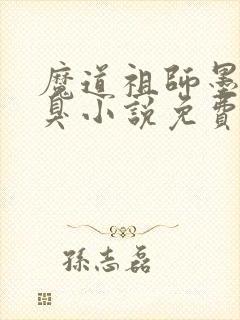 魔道祖師墨
臭小說免費
孫志磊